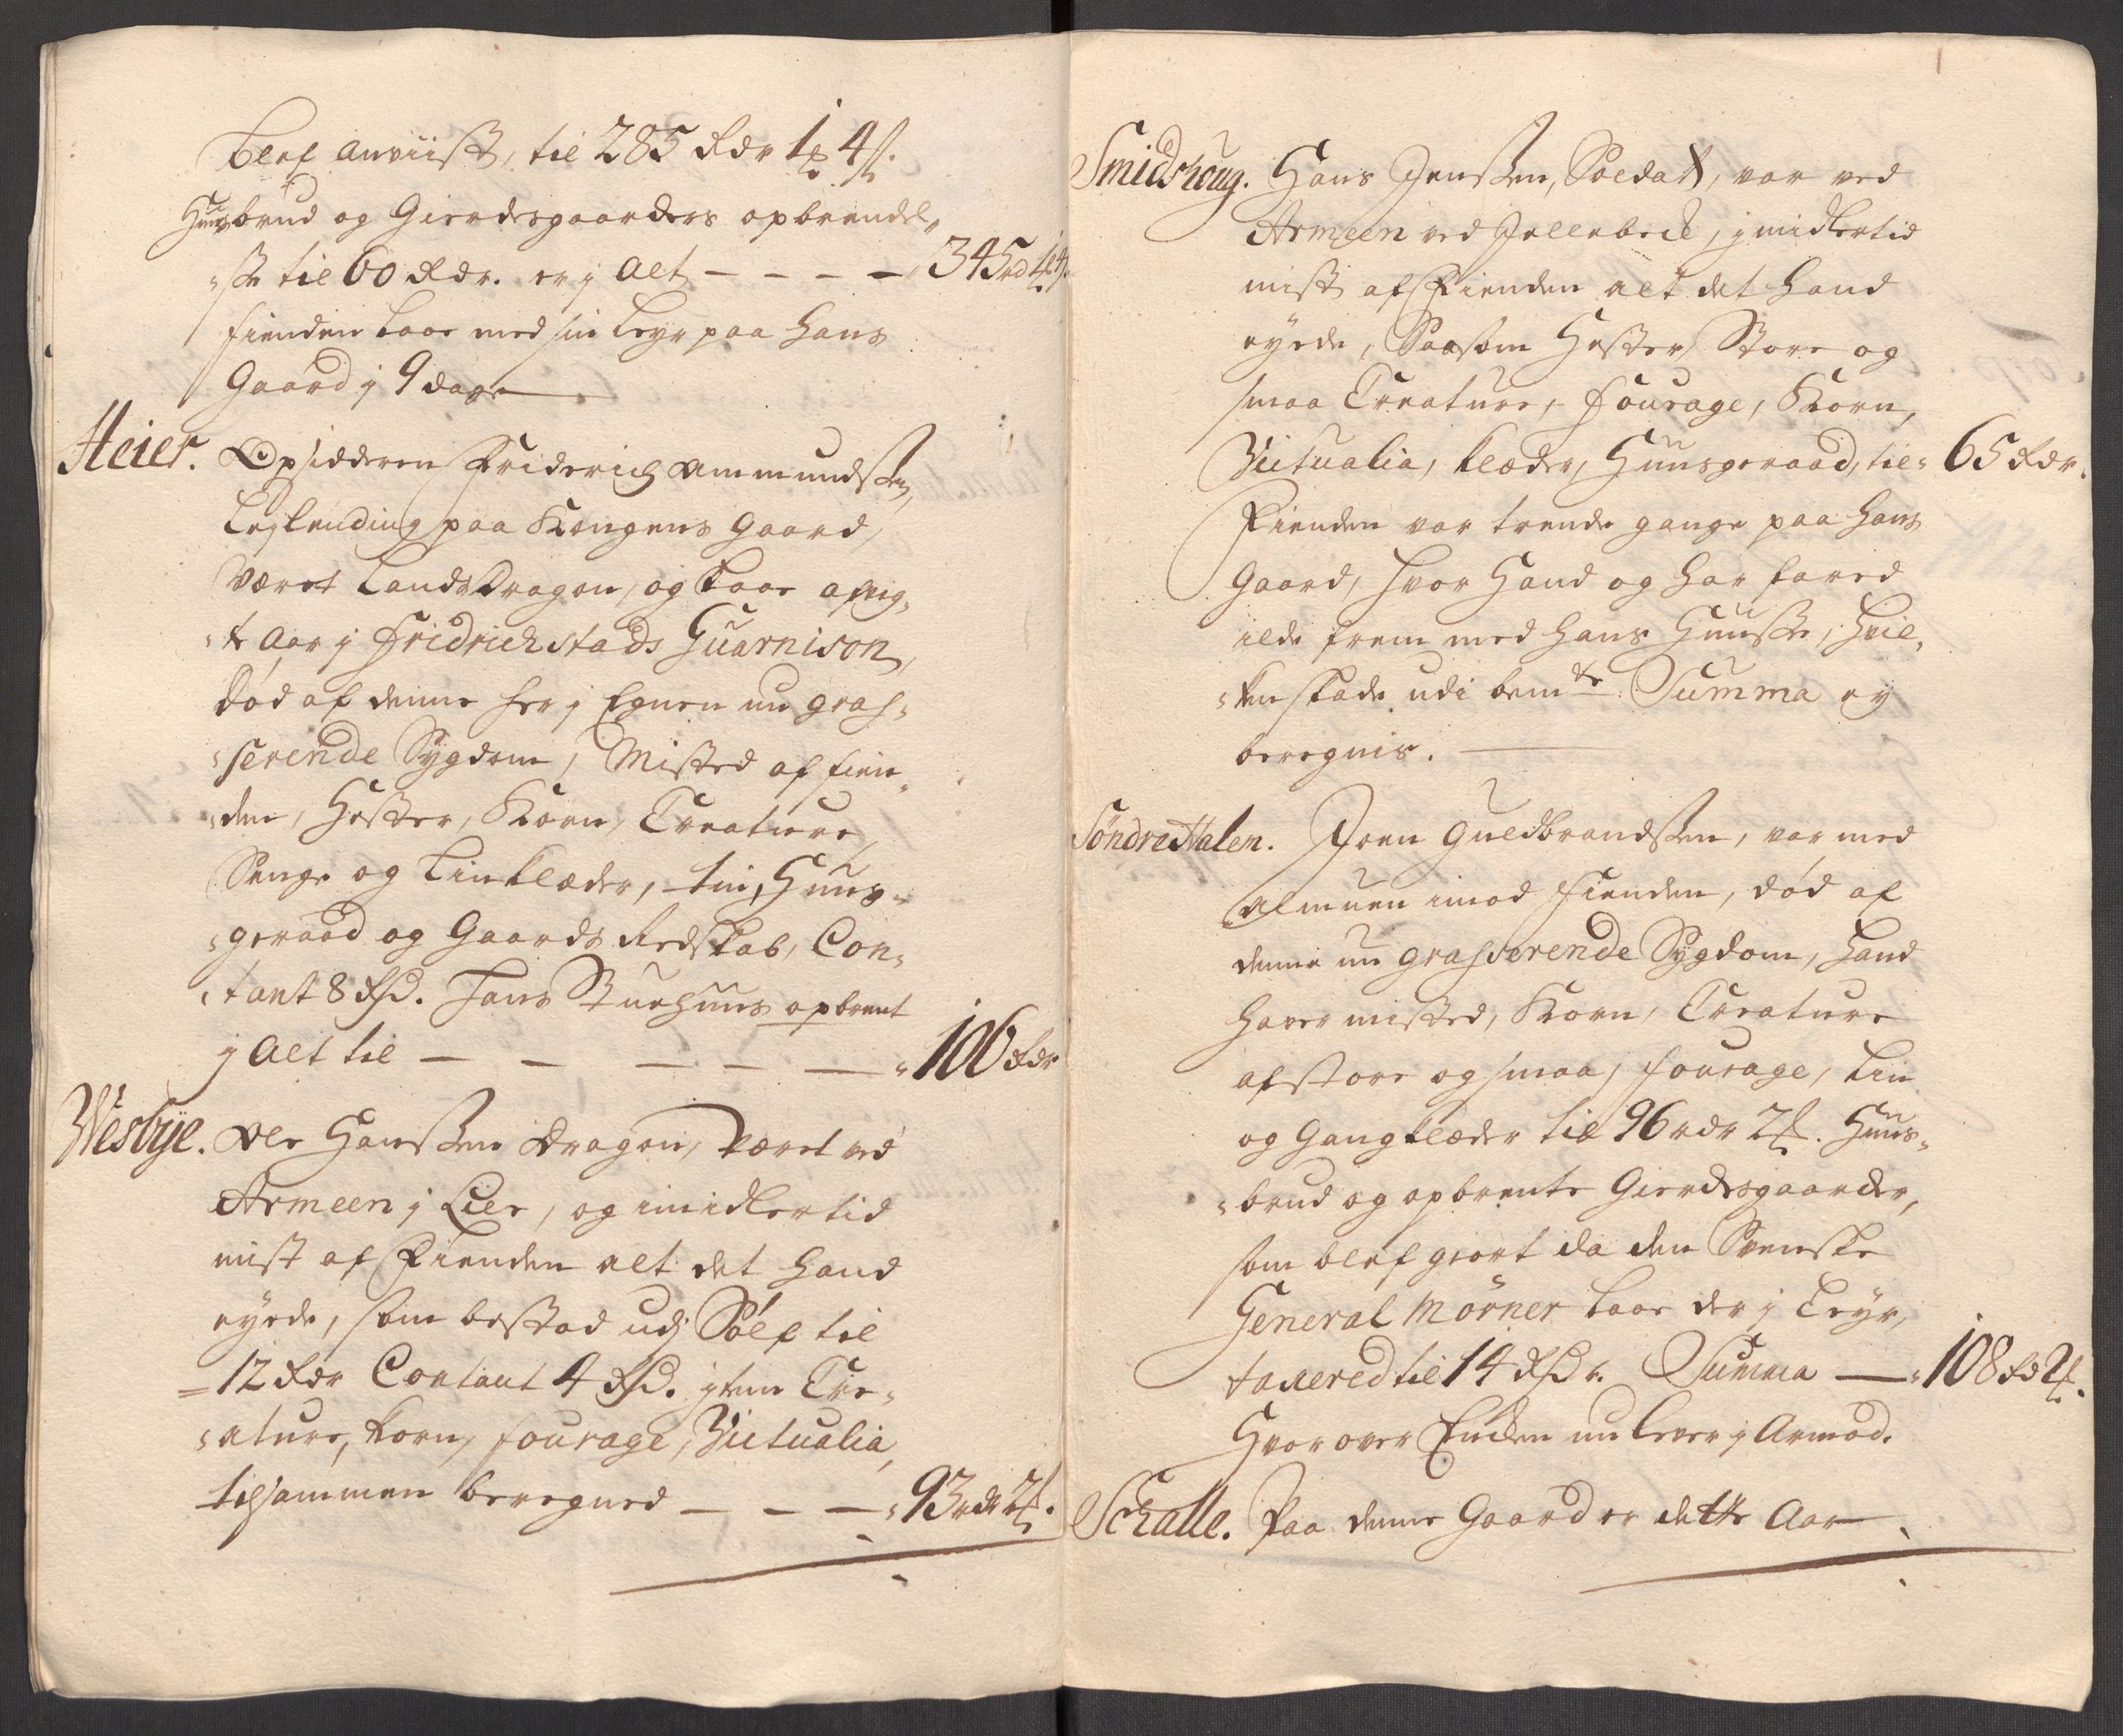 blef anviist, til 285 Rdr 1 ƶ 4 ß.
Huusbrud og Gierdesgaarders opbrendel„
„ste til 60 Rdr. er j Alt — — — — „345rd 1 ƶ 4 ß.
fienden laae med sin leyr paa hans
Gaard j 9 dage
Heier. Opsidderen Friderich Ammundsen,
Leylending paa Kongens Gaard,
Været LandsDragon, og laae afvig„
„te Aar j Fridrichstads Guarnison,
Død af denne her j Egnen nu gras„
„serende Sygdom, Misted af fien„
„den, Hester, Korn, Creature,
Senge og Linklæder, tin, Huus„
„geraad og Gaards Redskab, Con„
„tant 8 Rd. Hans Stuehuus opbrent
j Alt til — — — — — „106 Rdr
Wesbye. Ole Hanssen Dragon, Været ved
Armeen j Lier, og imidlertid
mist af Fienden alt det hand
eyede, som bestod udj Sølf til
12 Rdr Contant 4 Rd. jtem Cre„
„ature, korn, fourage, Victualia,
tilsammen beregned — — — „93rdr 2 ƶ.
Smidshoug. Hans Jenssen, Soldat, var ved
Armeen ved Jellebeck, jmidlertid
mist af Fienden alt det hand
eyede, Saasom Hester, Store og
smaa Creature, fourage, Korn,
Victualia, klæder, Huusgeraad, til„ 65 Rdr.
Fienden var trende gange paa hans
Gaard, hvor Hand og har fared
ilde frem med hans Huuse, hvil„
„ken skade udi bemte Summa ey
beregnis.
Söndre Halen. Joen Guldbrandssen, var med
Almuen imod fienden, død af
denne nu grasserende Sygdom, hand
haver misted, Korn, Creature
af store og smaa, fourage, Lin
og Gangklæder til 96 rdr 2 ƶ. Huus„
„brud og opbrente Gierdesgaarder,
som blef giort da den Svenske
General Mörner laae der j Leyr,
taxered til 14 Rdr. Summa — „108 Rd 2 ƶ.
Hvor over Enken nu lever j Armod.
Schalle. Paa denne Gaard er dette Aar